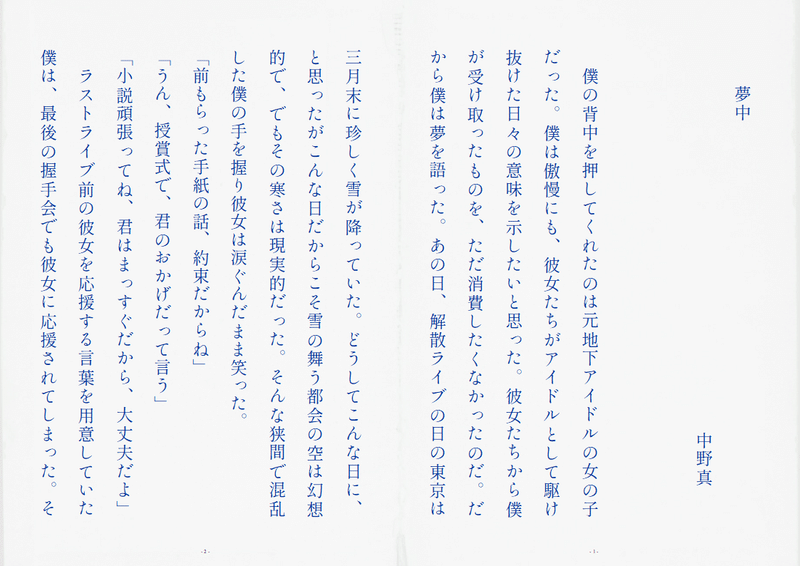 夢中
中野真
僕の背中を押してくれたのは元地下アイドルの女の子
だった。僕は傲慢にも、彼女たちがアイドルとして駆け
抜けた日々の意味を示したいと思った。彼女たちから僕
が受け取ったものを、ただ消費したくなかったのだ。だ
から僕は夢を語った。あの日、解散ライブの日の東京は
- 1 -
三月末に珍しく雪が降っていた。どうしてこんな日に、
と思ったがこんな日だからこそ雪の舞う都会の空は幻想
的で、でもその寒さは現実的だった。そんな狭間で混乱
した僕の手を握り彼女は涙ぐんだまま笑った。
「前もらった手紙の話、約束だからね」
「うん、授賞式で、君のおかげだって言う」
「小説頑張ってね、君はまっすぐだから、大丈夫だよ」
ラストライブ前の彼女を応援する言葉を用意していた
僕は、最後の握手会でも彼女に応援されてしまった。そ
- 2 -